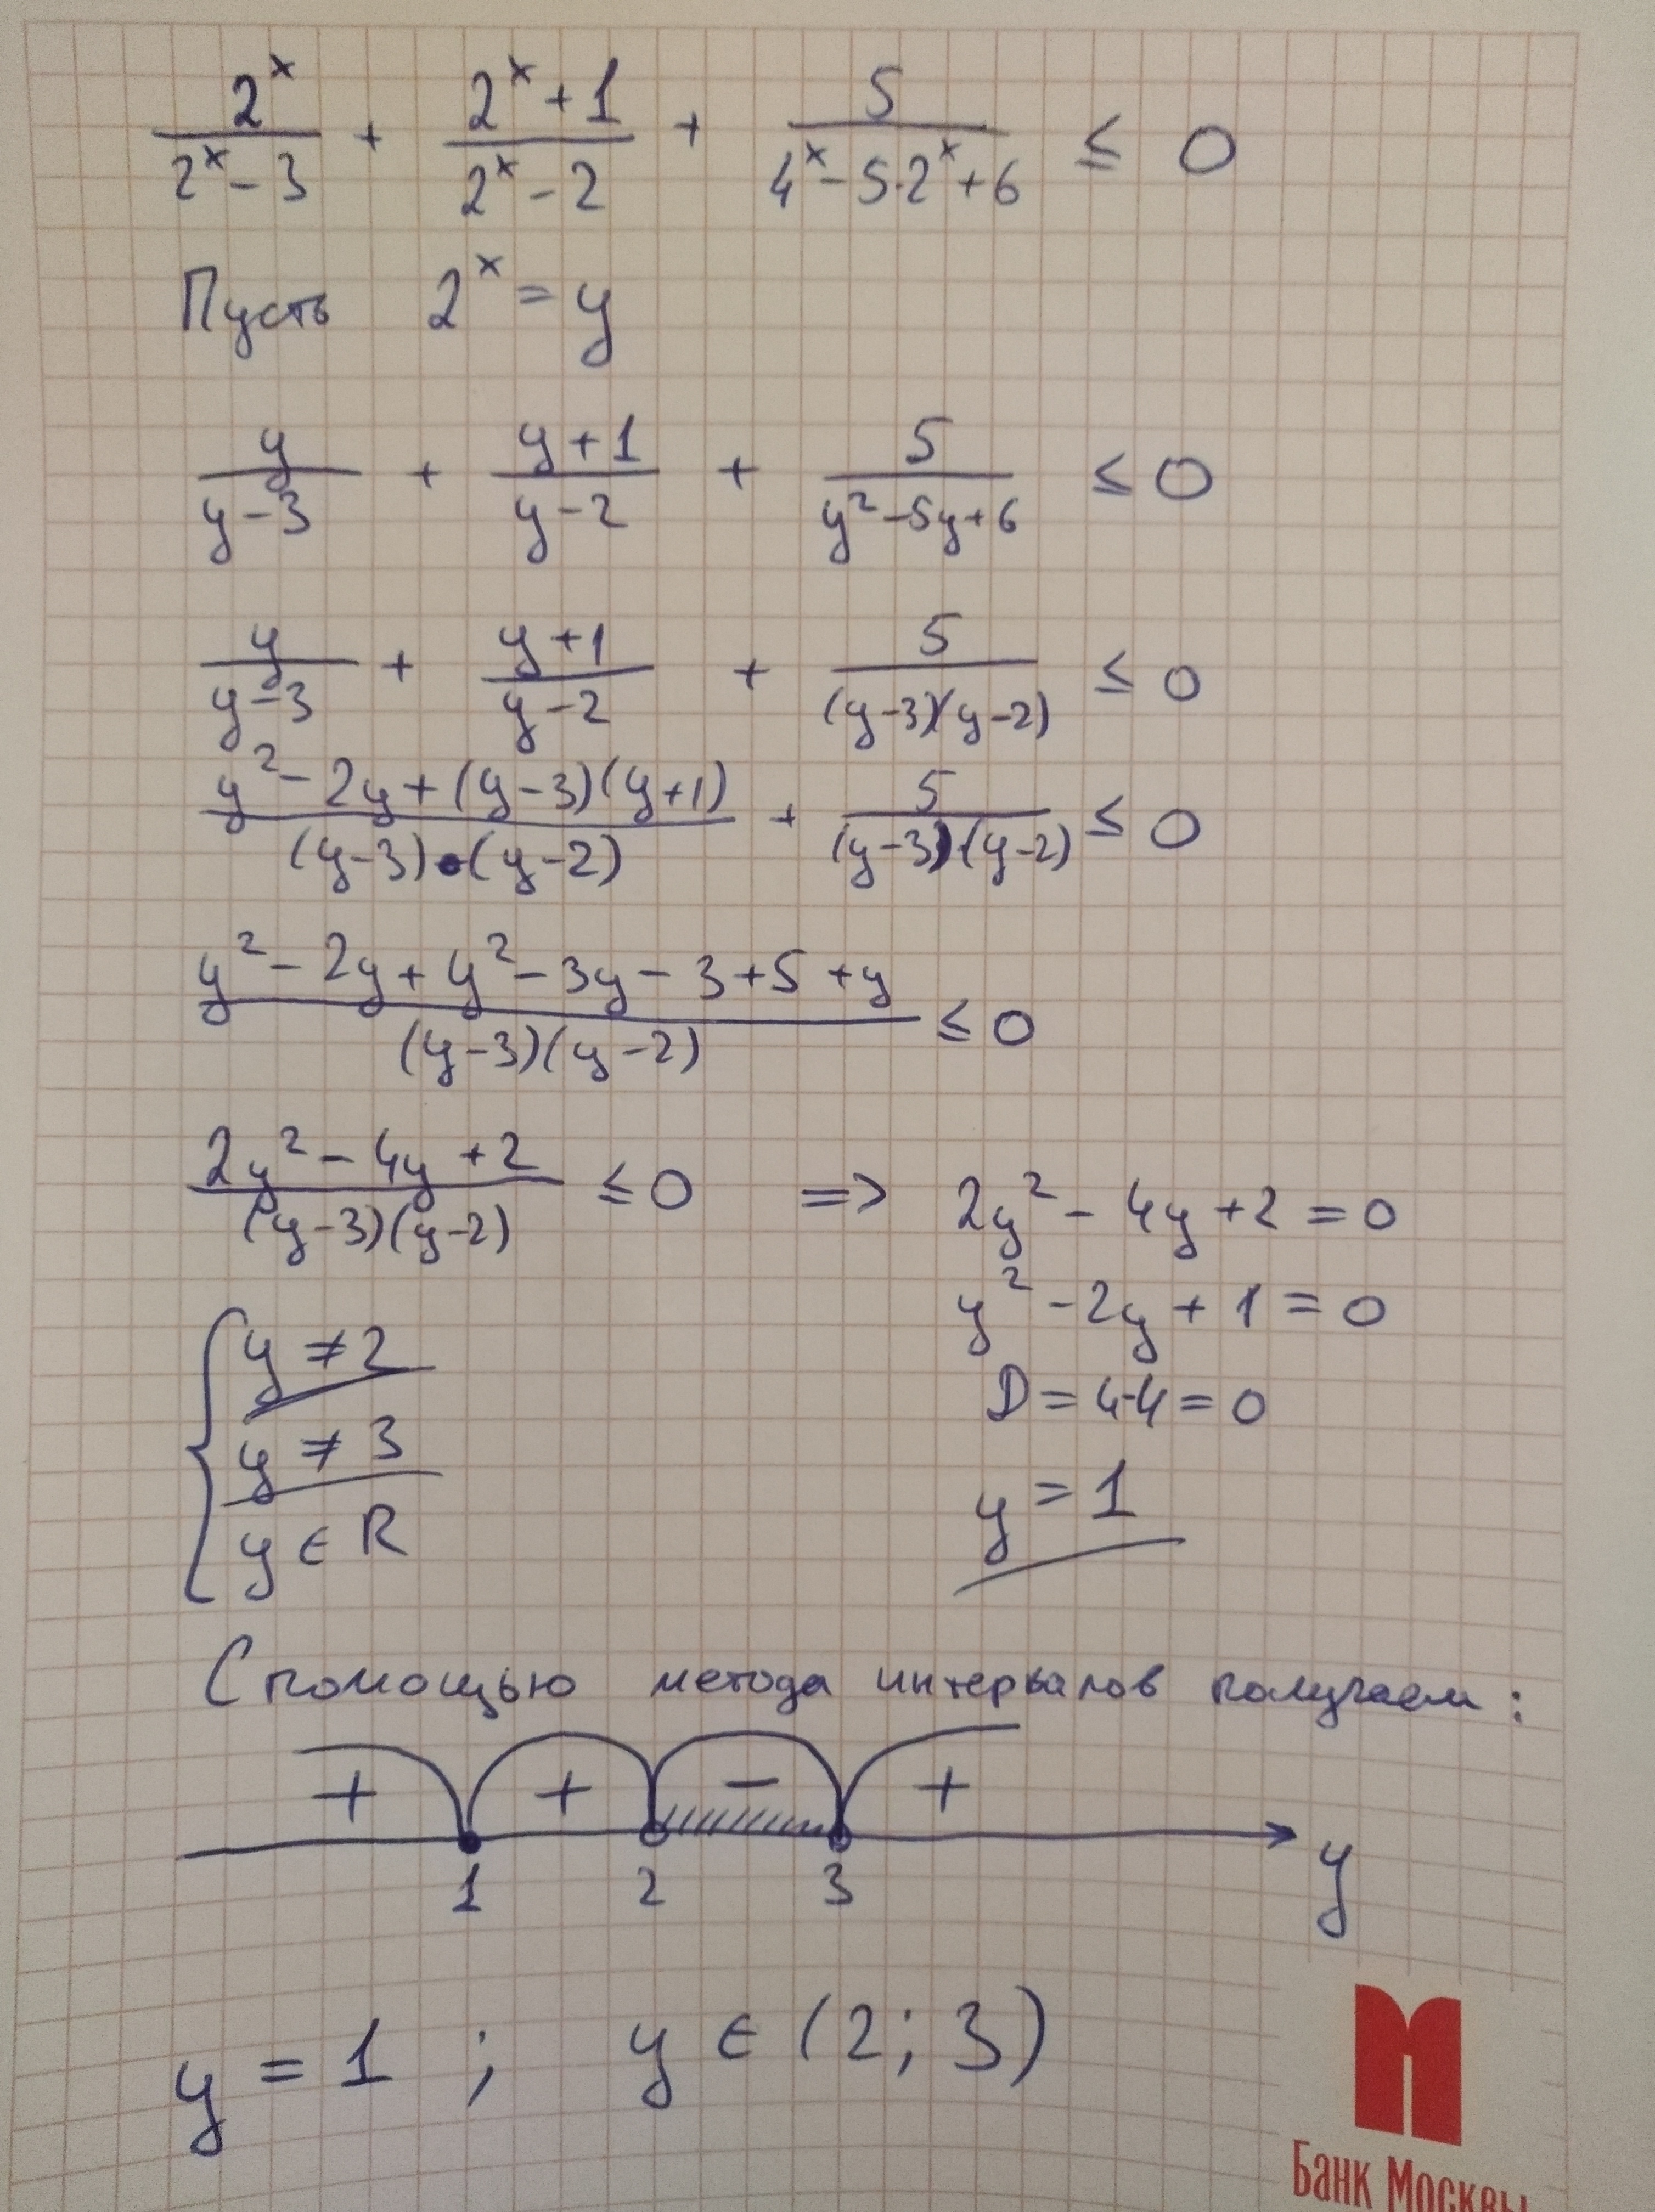 2^x/(2^x - 3) + (2^x + 1)/(2^x - 2) + 5/(4^x - 5·2^x + 6) ≤ 0
Пусть 2^x = y
y/(y - 3) + (y + 1)/(y - 2) + 5/(y² - 5y + 6) ≤ 0
y/(y - 3) + (y + 1)/(y - 2) + 5/((y - 3)(y - 2)) ≤ 0
(y² - 2y + (y - 3)(y + 1))/((y - 3)·(y - 2)) + 5/((y - 3)·(y - 2)) ≤ 0
(y² - 2y + y² - 3y - 3 + 5 + y)/((y - 3)(y - 2)) ≤ 0
(2y² - 4y + 2)/((y - 3)(y - 2)) ≤ 0 => 2y² - 4y + 2 = 0
y² - 2y + 1 = 0
D = 4-4 = 0
y = 1
{ y ≠ 2
y ≠ 3
y ∈ R
С помощью метода интервалов получаем:
+ + - +
1 2 3 y
y = 1 ; y ∈ (2; 3)
Банк Москвы